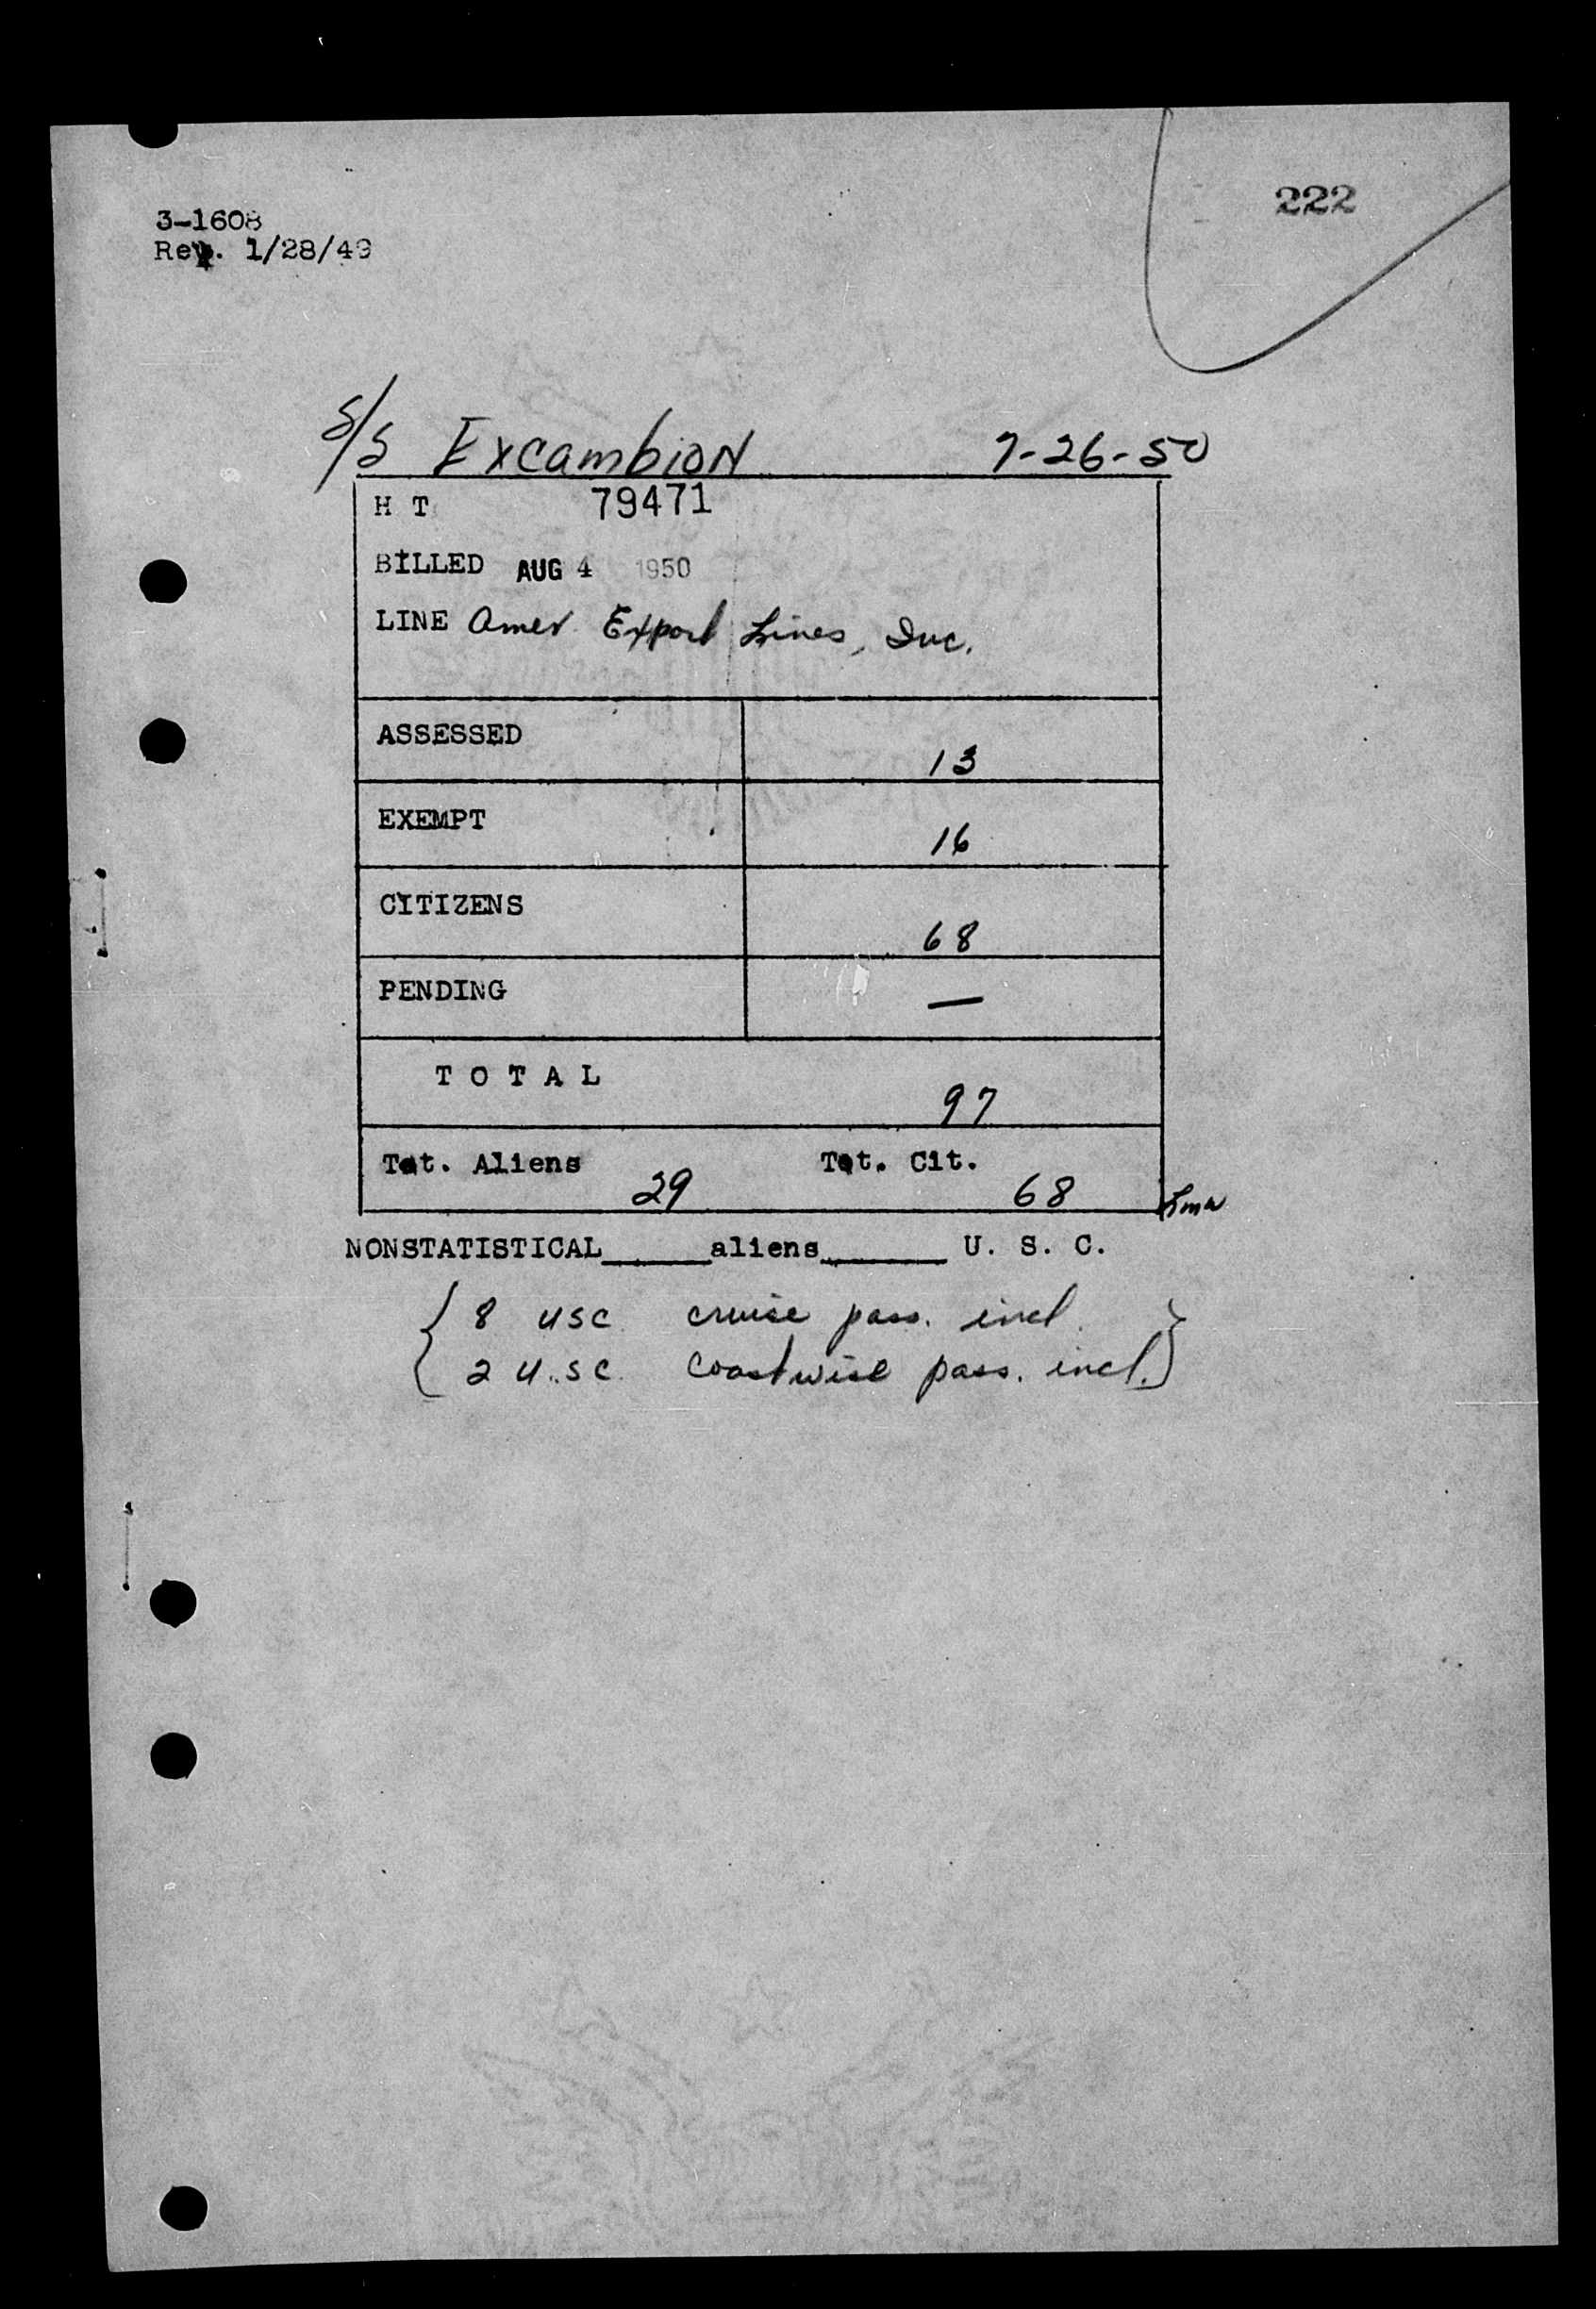 222
3-1608
Rev. 1/28/49
S/S Excambion 7-26-50
H T 79471
BILLED AUG 4 1950
LINE Amer. Export Lines, Inc.
ASSESSED 13
EXEMPT 16
CITIZENS 68
PENDING —
T O T A L 97
Tot. Aliens 29 Tot. Cit. 68
NONSTATISTICAL_____aliens______ U. S. C.
{ 8 USC cruise pass. incl. }
{ 2 U.S.C. Coastwise pass. incl. }